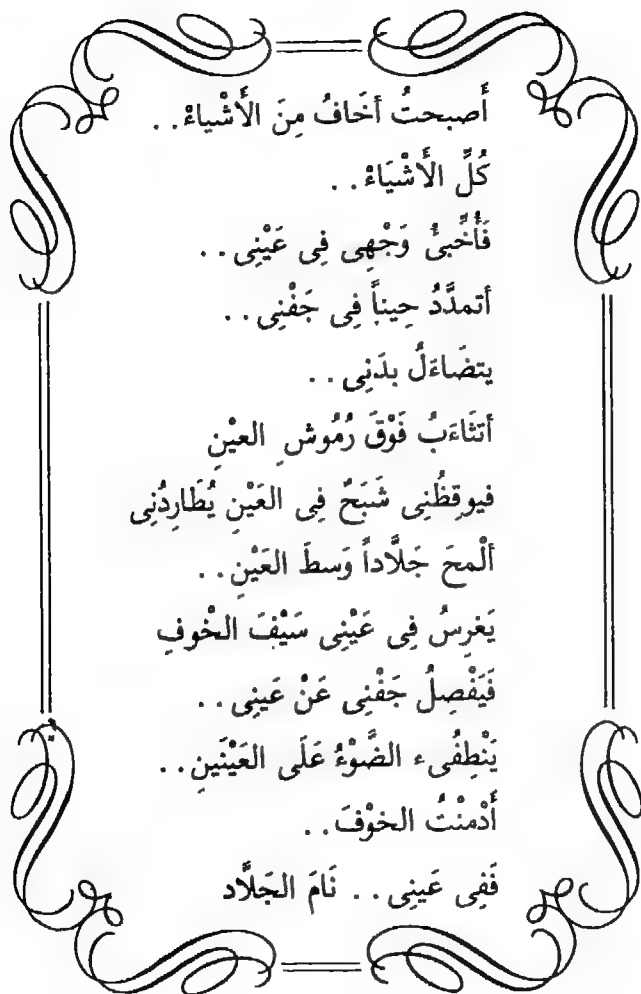 أَصبحتُ أخَافُ مِنَ الأَشْياءْ . .
كُلِّ الأَشْيَاءْ . .
فَأُخَبئُ وَجْهِى فِى عَيْنِى . .
أتمدَّدُ حِيناً فِى جَفْنِى . .
يتضَاءَلُ بدَنِى . .
أتثَاءَبُ فَوْقَ رُمُوشِ العيْنِ
فيوقِظُنِى شَبَحٌ فِى العَيْنِ يُطَارِدُنِى
ألْمحَ جَلَّاداً وَسطَ العَيْنِ . .
يَغرِسُ فِى عَيْنِى سَيْفَ الخْوفِ
فَيَفْصِلُ جَفْنِى عَنْ عَينِى . .
يَنْطِفُىء الضَّوْءُ عَلَى العَيْنَينِ . .
أَدْمنْتُ الخوْفَ . .
فَفِى عَينِى . . نَامَ الجَلاَّد